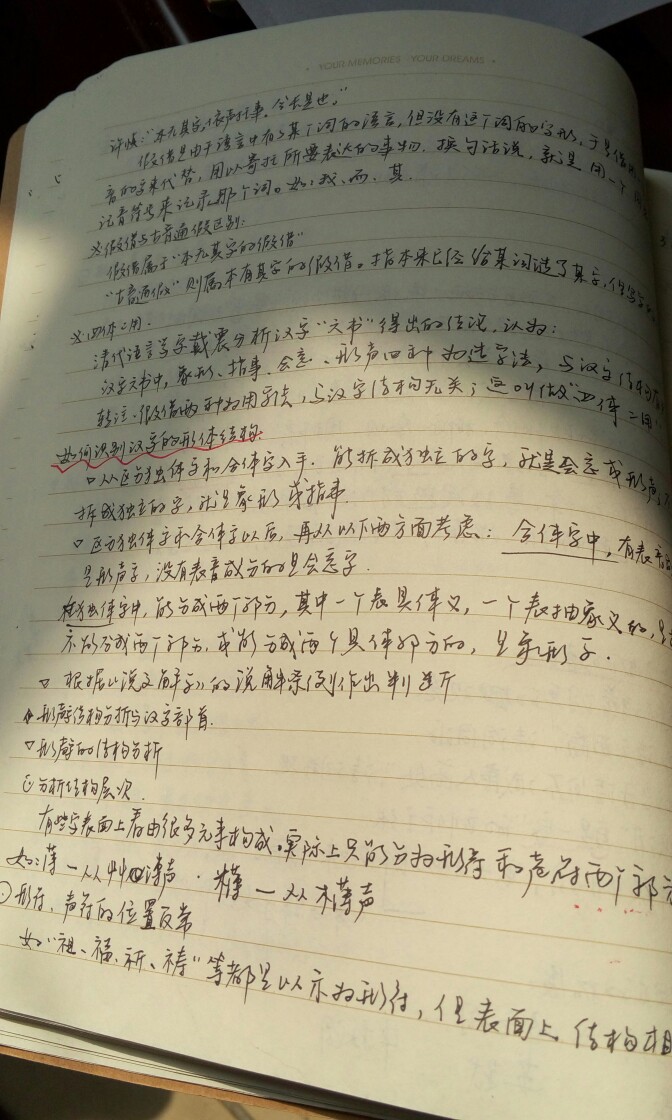 YOUR MEMORIES YOUR DREAMS
许慎："本无其字,依声托事。令长是也。"
假借是由于语言中有了某个词的语言,但没有这个词的字形,于是借用
音的字来代替,用以寄托所要表达的事物。换句话说,就是用一个同
记音符号来记录那个词。如:我、而、其
※假借与古音通假区别:
假借属于"本无其字的假借"
"古音通假"则属本有其字的假借。指本来已经给某词造了某字,但写字
※四体二用.
清代语言学家戴震分析汉字"六书"得出的结论,认为:
汉字六书中,象形、指事、会意、形声四种为造字法,与汉字结构有
转注、假借两种为用字法,与汉字结构无关;这叫做"四体二用"
如何识别汉字的形体结构
▽从区分独体字和合体字入手.能拆成独立的字,就是会意或形声;不
拆成独立的字,就是象形或指事.
▽区分独体字和合体字以后,再从以下两方面考虑:合体字中,有表音
是形声字,没有表音成分的是会意字.
在独体字中,能分成两个部分,其中一个表具体义,一个表抽象义的,是
不能分成两个部分,或能分成两个具体部分的,是象形字.
▽根据《说文解字》的说解条例作出判断
形声结构分析与汉字部首.
▽形声的结构分析
①分析结构层次.
有些字表面上看由很多元素构成,实际上只能分为形符和声符两个部分
如:薄—从艸溥声.樽—从木尊声
形符、声符的位置反常
如"祖、福、祈、祷"等都是以示为形符,但表面上结构相